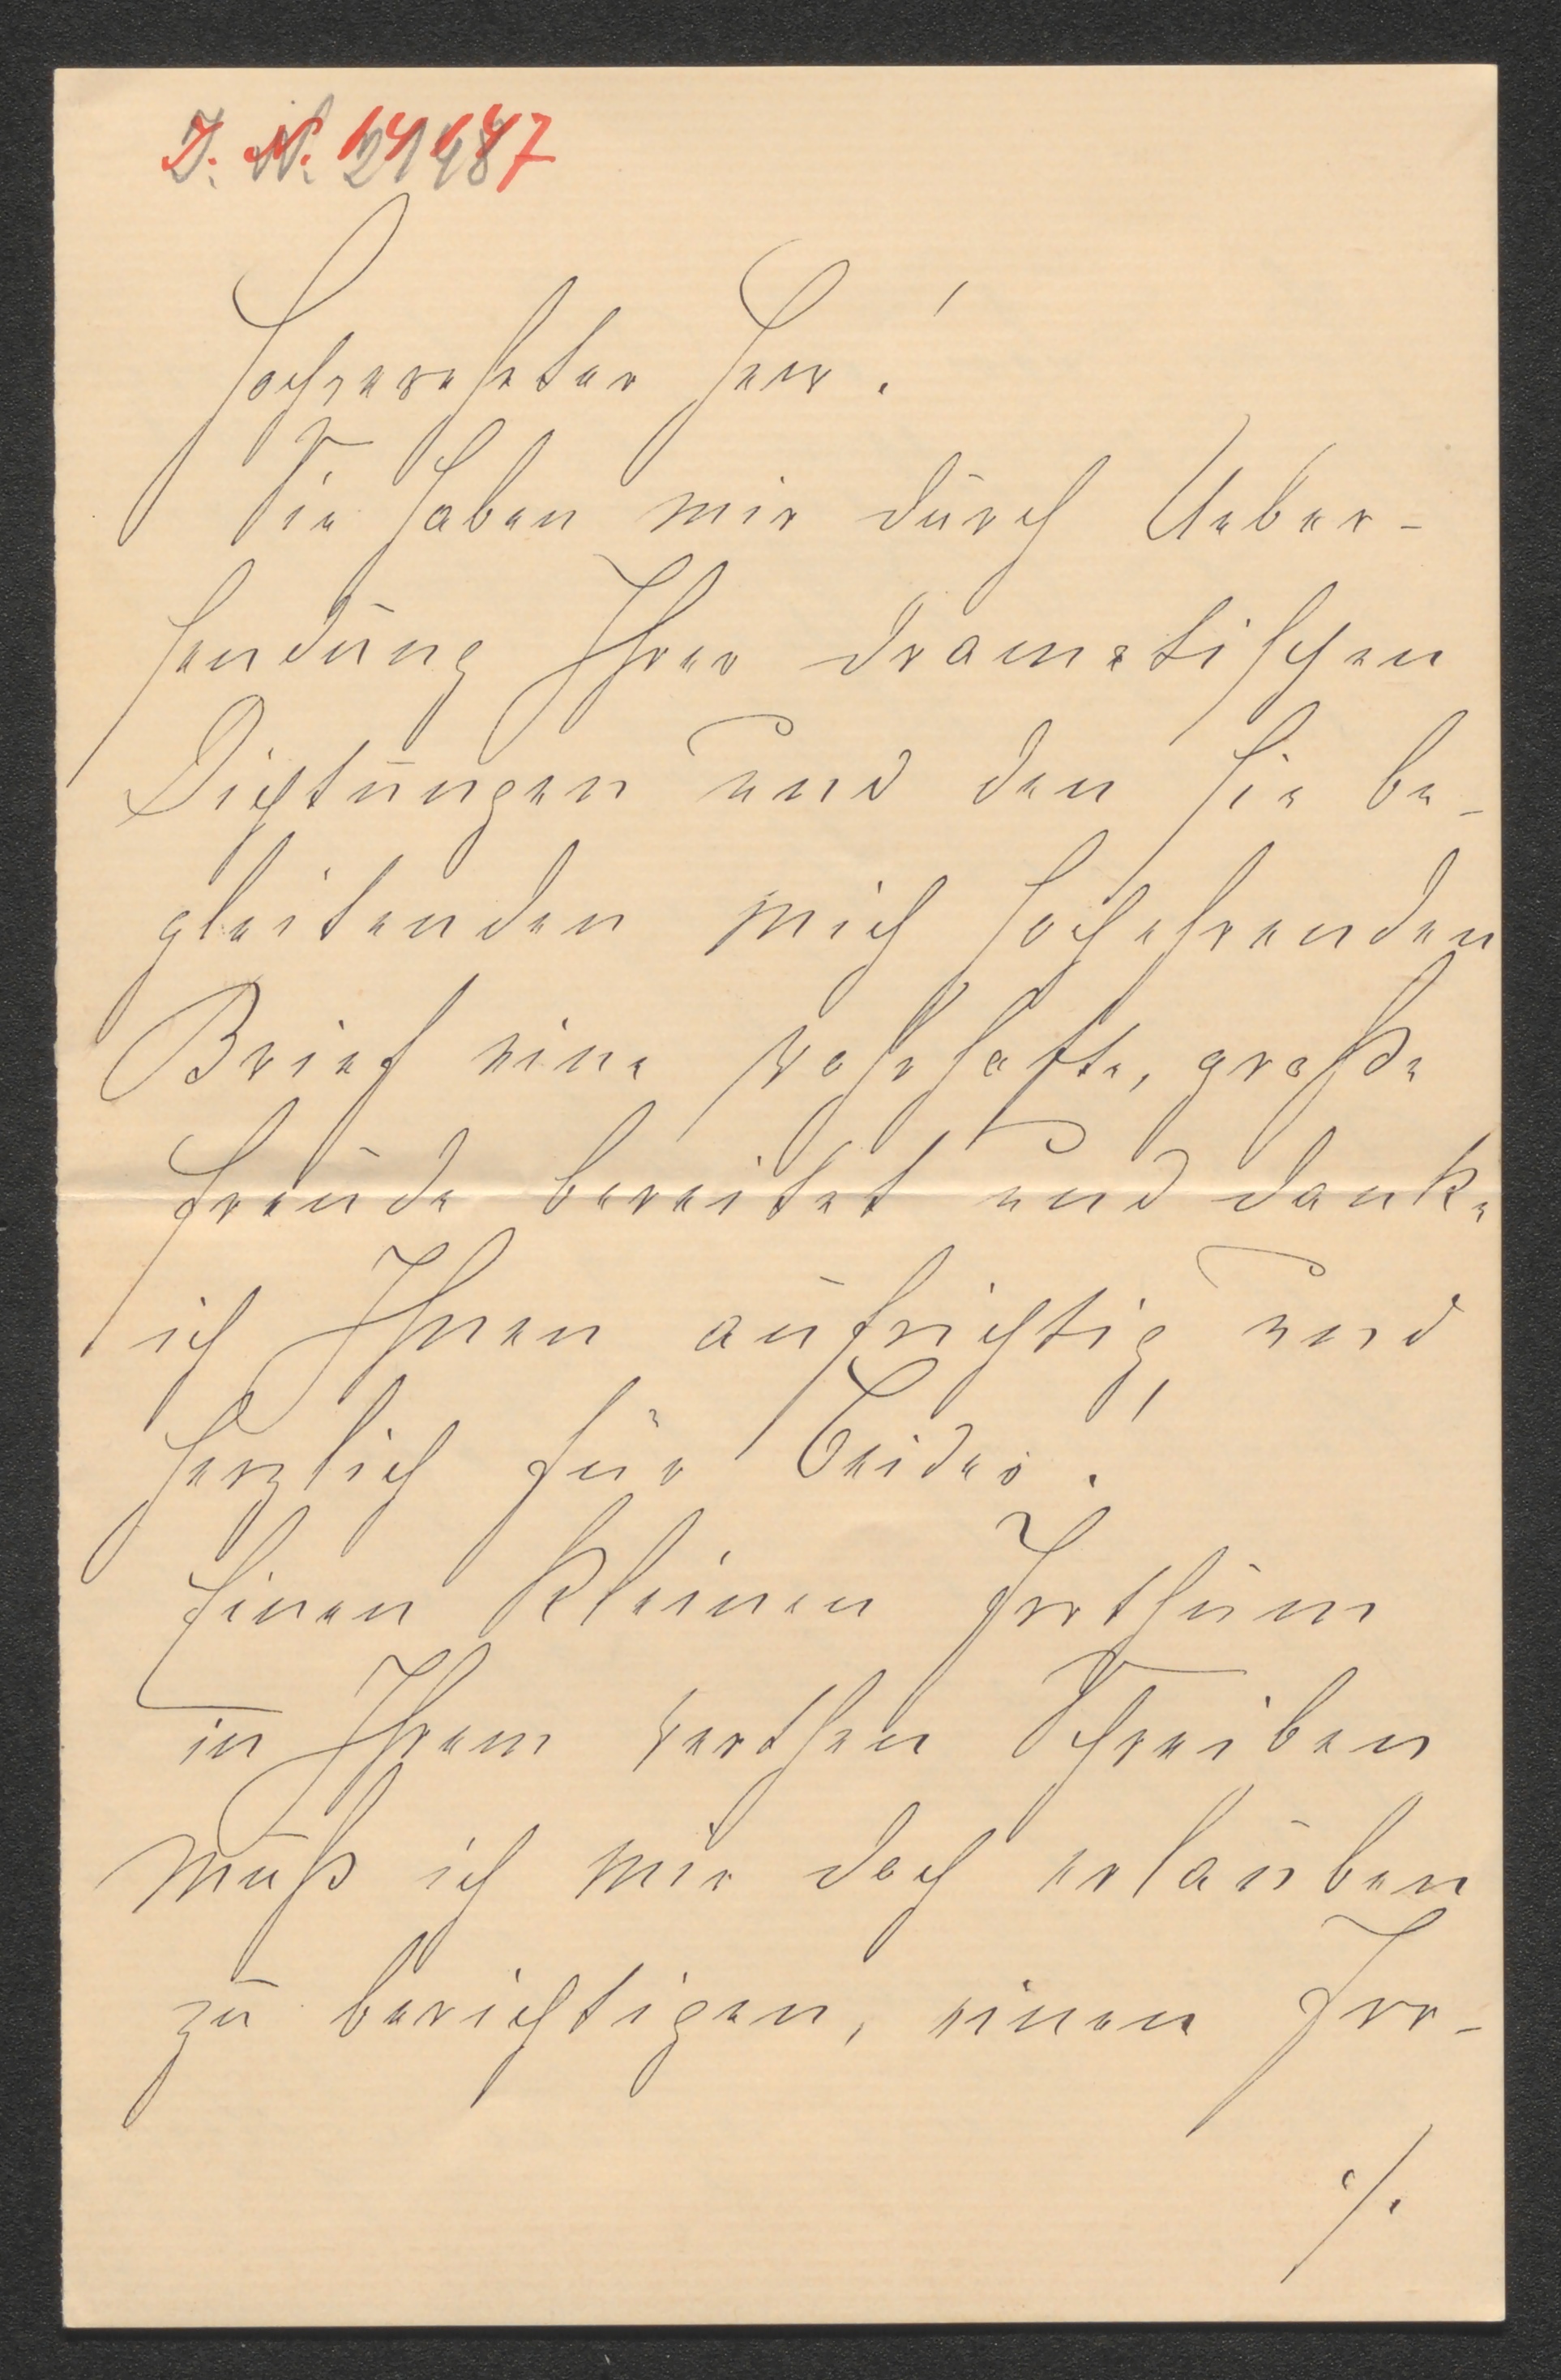 Hochverehrter Herr!
Sie haben mir durch Ueber-
sendung Ihrer dramatischen
Dichtungen und den sie be-
gleitenden mich hochehrenden
Brief eine wahrhafte, große
Freude bereitet und danke
ich Ihnen aufrichtig und
herzlich für Beides!
Einen kleinen Irrthum
in Ihrem werthen Schreiben
muß ich mir doch erlauben
zu berichtigen, einen Irr-
./.